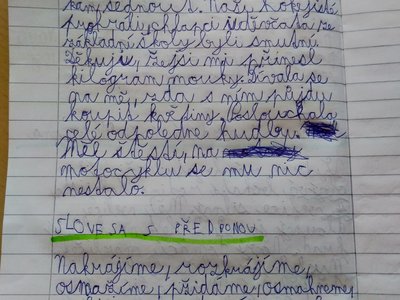 kam sednout. Naši hokejisté
prohráli, chlapci i děvčata ze
základní školy byli smutní
Děkuji, žejsi mi přinesl
kilogram mouky. Dívala se
na mě, zda s ním půjdu
koupit květiny. Poslouchala
celé odpoledne hudbu.
Měl štěstí, na
motocyklu se mu nic
nestalo.
SLOVESA S PŘEDPONOU
Nakrájíme, rozkrájíme,
osmažíme, přidáme, osmahneme,